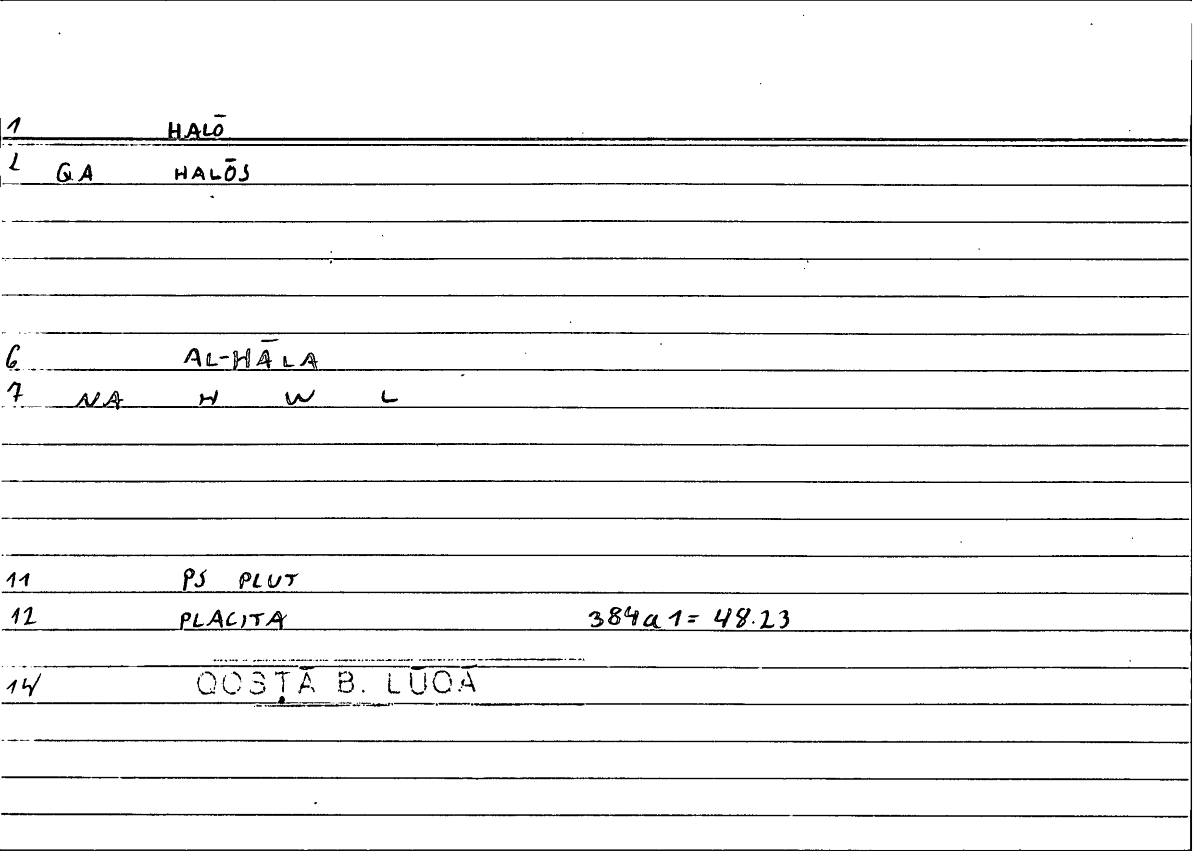 1 HALŌ
2 QA HALŌS
6 AL-HĀLA
7 NA H W L
11 PS PLUT
12 PLACITA 384a1= 48.23
14 QOSṬĀ B. LŪQĀ